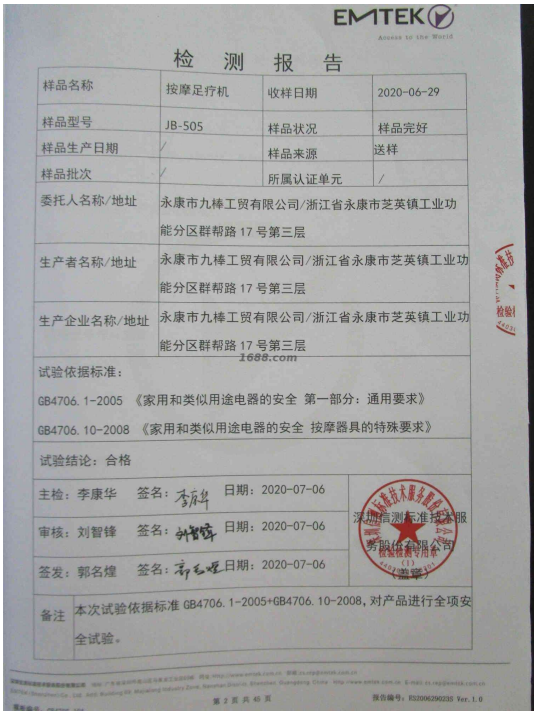 EMTEK
Access to the World
检 测 报 告
样品名称 按摩足疗机 收样日期 2020-06-29
样品型号 JB-505 样品状况 样品完好
样品生产日期 / 样品来源 送样
样品批次 / 所属认证单元 /
委托人名称/地址 永康市九棒工贸有限公司/浙江省永康市芝英镇工业功
能分区群帮路 17 号第三层
生产者名称/地址 永康市九棒工贸有限公司/浙江省永康市芝英镇工业功
能分区群帮路 17 号第三层
生产企业名称/地址 永康市九棒工贸有限公司/浙江省永康市芝英镇工业功
能分区群帮路 17 号第三层
1688.com
试验依据标准：
GB4706.1-2005 《家用和类似用途电器的安全 第一部分：通用要求》
GB4706.10-2008 《家用和类似用途电器的安全 按摩器具的特殊要求》
试验结论：合格
主检：李康华 签名： 日期：2020-07-06
审核：刘智锋 签名：刘智锋 日期：2020-07-06
签发：郭名煌 签名： 日期：2020-07-06
深圳信测标准技术服
务股份有限公司
检验检测专用章
(1)
(盖章)
检验
备注 本次试验依据标准 GB4706.1-2005+GB4706.10-2008,对产品进行全项安
全试验。
第 2 页 共 45 页
报告编号：ES200629023S Ver.1.0